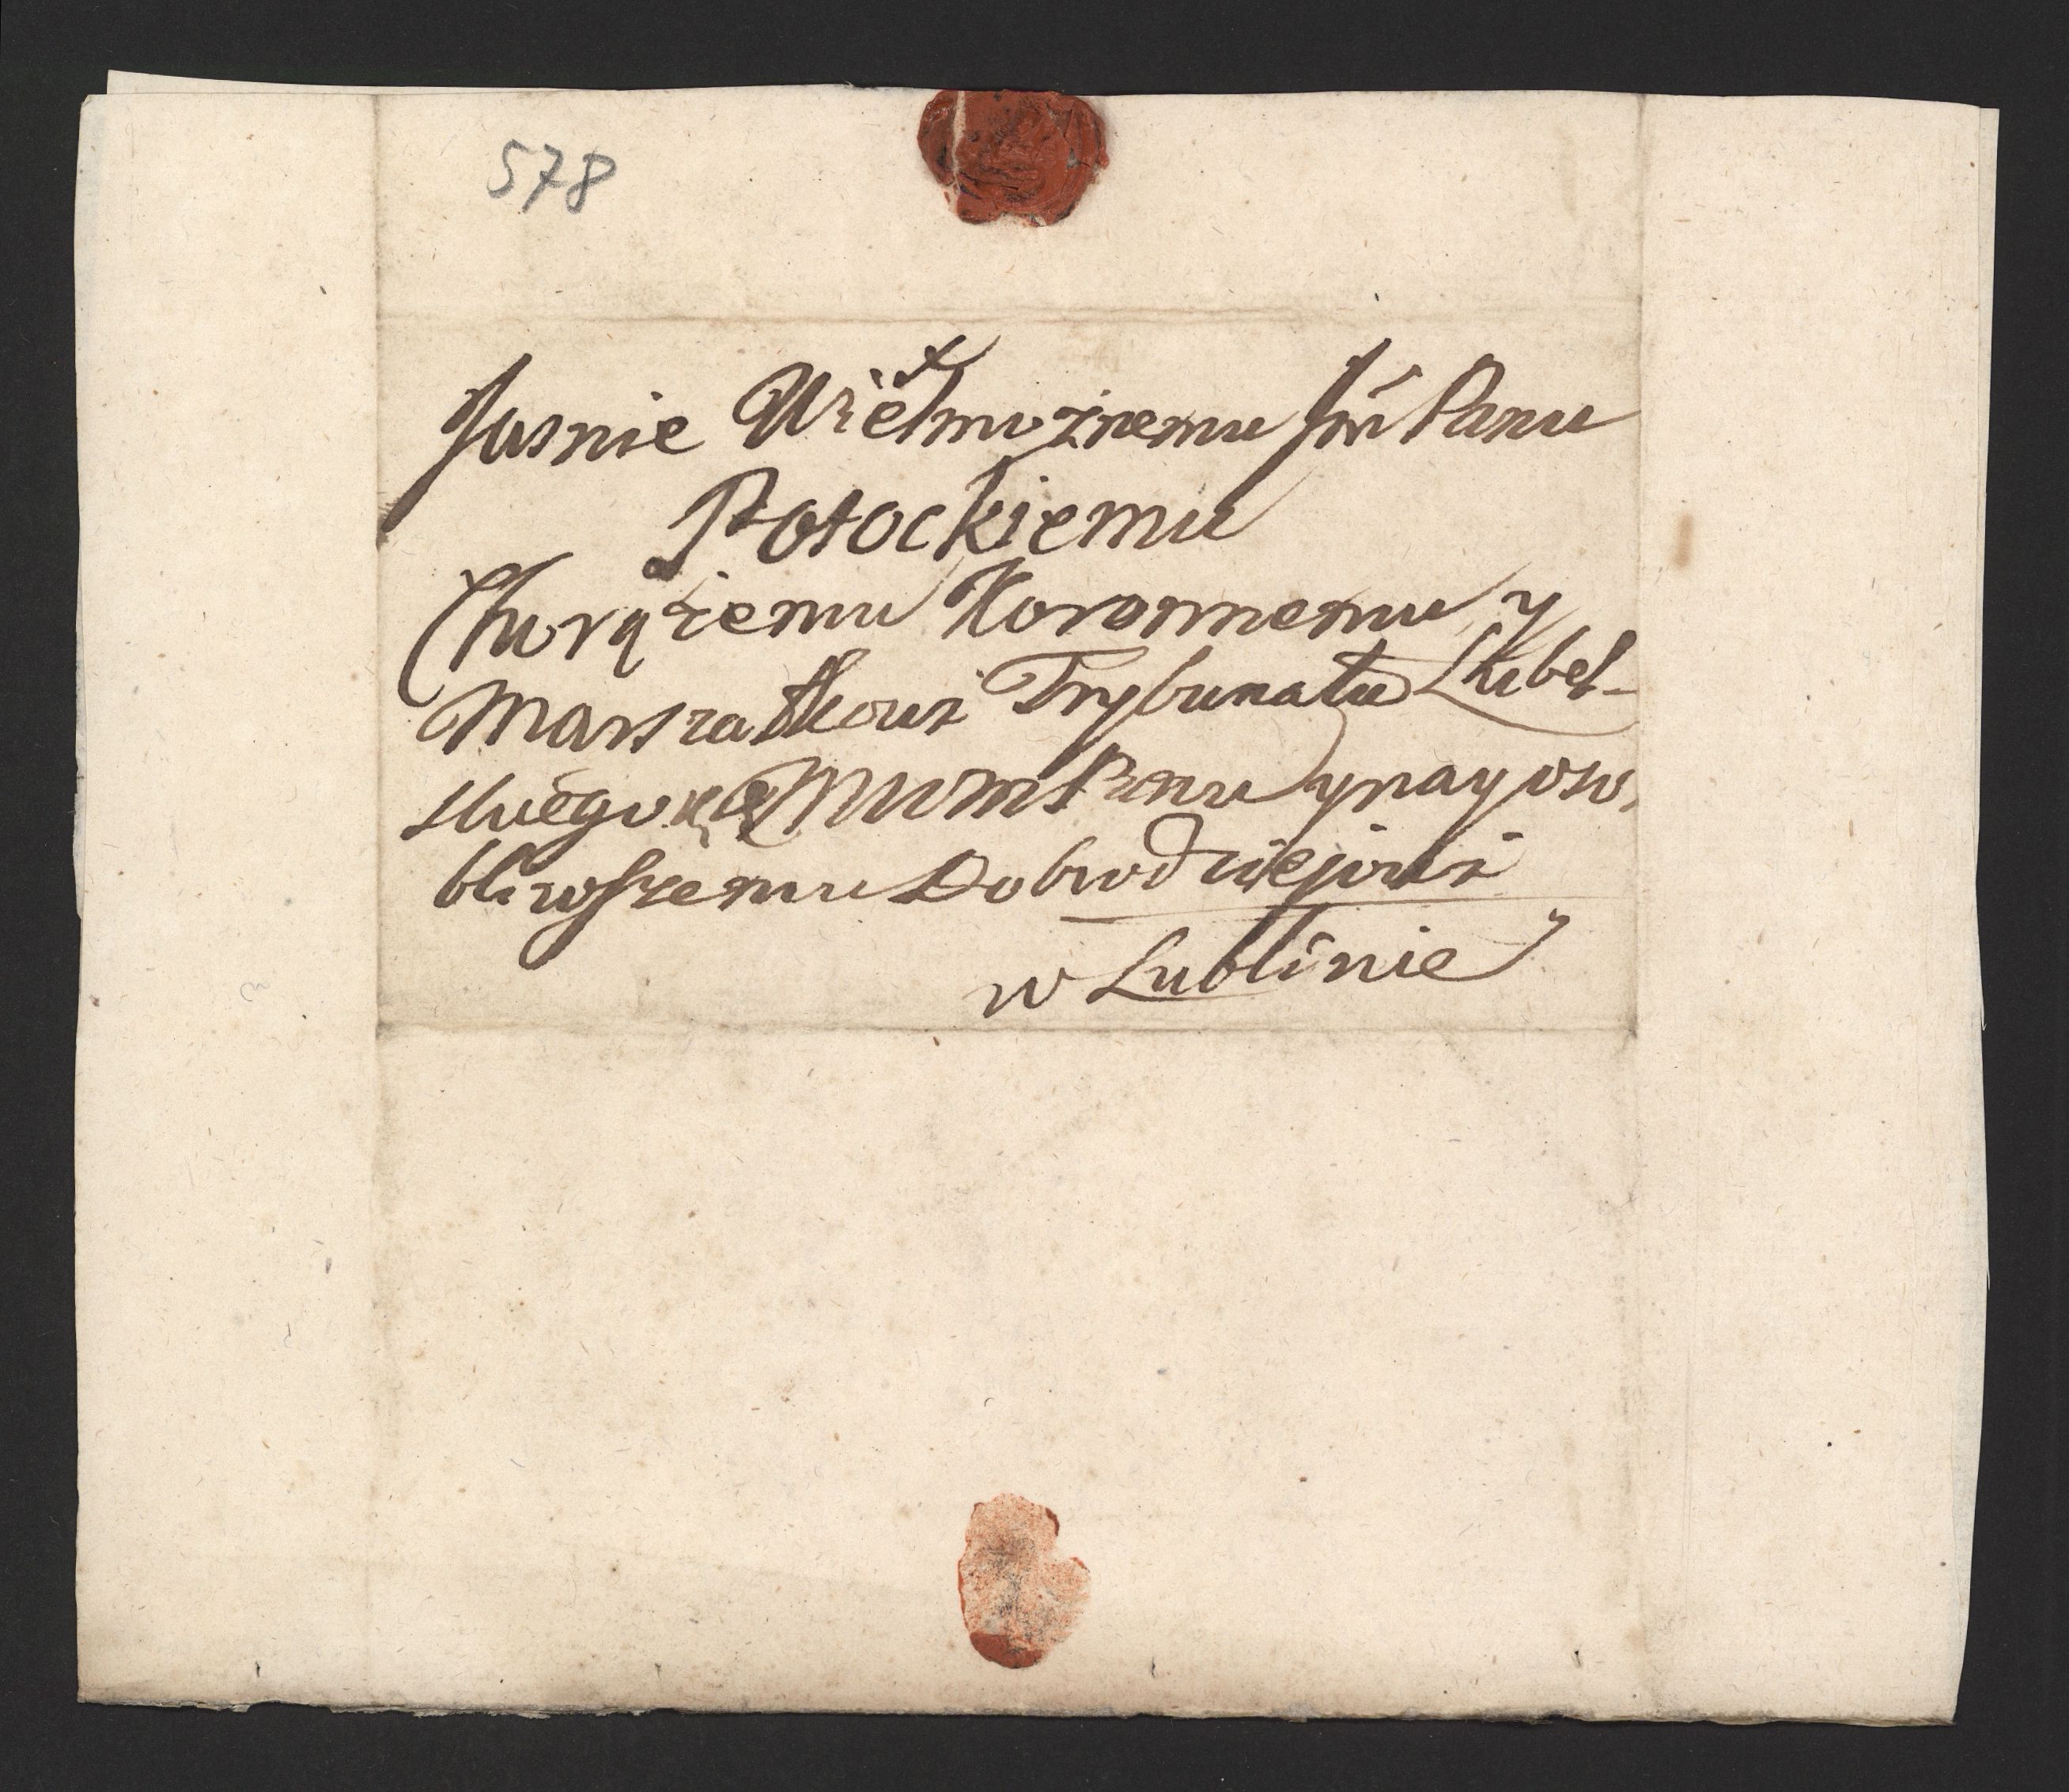 578
Jasnie Wielmożnemu Jm Panu
Potockiemu
Chorążemu Koronnemu y
Marszałkowi Trybunału Lubel-
skiego Panu y nayoso,
bliwszemu Dobrodziejowi
w Lublinie